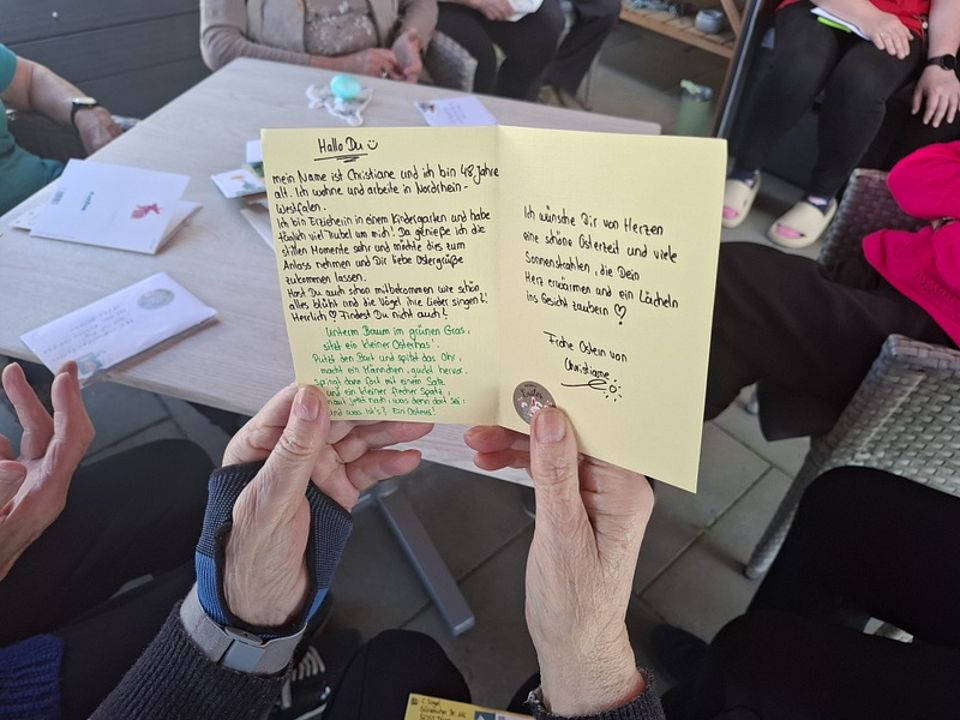 Hallo Du
mein Name ist Christiane und ich bin 48 Jahre
alt. Ich wohne und arbeite in Nordrhein-
Westfalen.
Ich bin Erzieherin in einem Kindergarten und habe
täglich viel Trubel um mich! Da genieße ich die
stillen Momente sehr und möchte dies zum
Anlass nehmen und Dir liebe Ostergrüße
zukommen lassen.
Hast Du auch schon mitbekommen wie schön
alles blüht und die Vögel ihre Lieder singen?!
Herrlich ♡ Findest Du nicht auch?
Unterm Baum im grünen Gras,
sitzt ein kleiner Osterhas'.
Putzt den Bart und spitzt das Ohr,
macht ein Männchen, guckt hervor.
Springt dann fort mit einem Satz
und ein kleiner frecher Spatz,
schaut jetzt nach, was denn dort sei:
und was ist's? Ein Osterei!
Ich wünsche Dir von Herzen
eine schöne Osterzeit und viele
Sonnenstrahlen, die Dein
Herz erwärmen und ein Lächeln
ins Gesicht zaubern ♡
Frohe Ostern von
Christiane